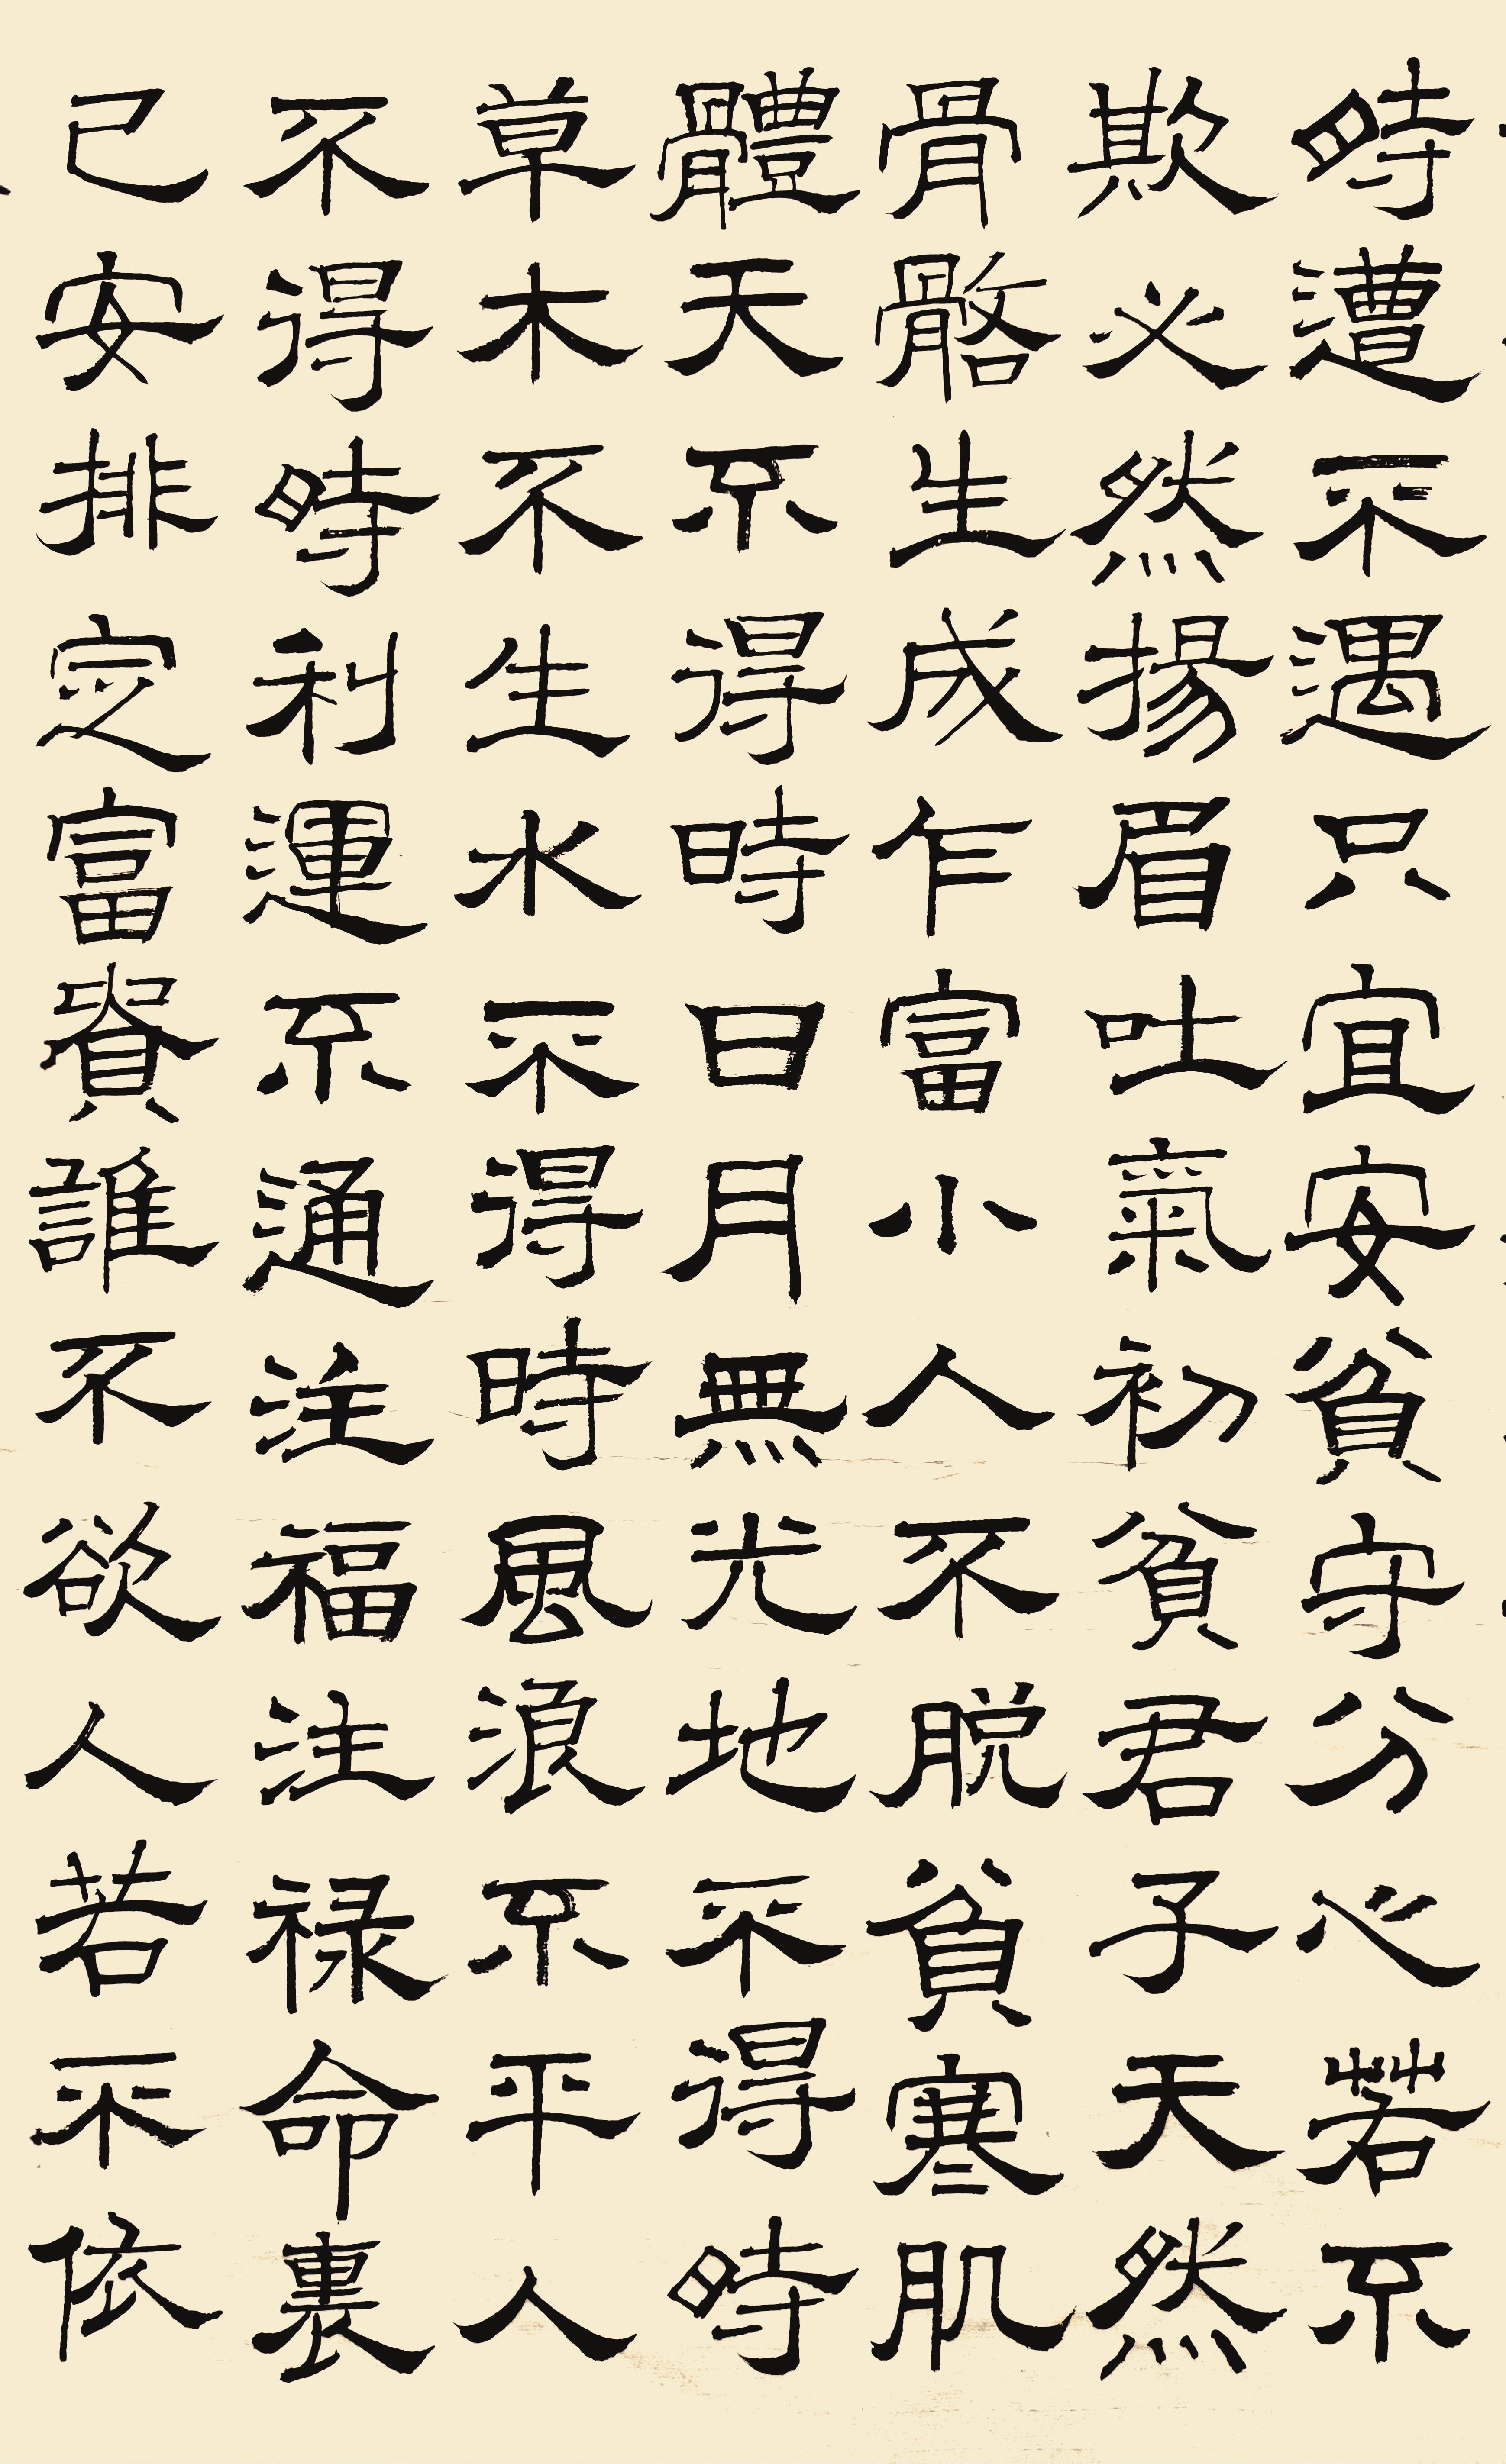 時遭不遇只宜安貧守分心若不
欺必然揚眉吐氣初貧君子天然
骨骼生成乍富小人不脫貧寒肌
體天不得時日月無光地不得時
草木不生水不得時風浪不平人
不得時利運不通注福注祿命裏
已安排定富貴誰不欲人若不依